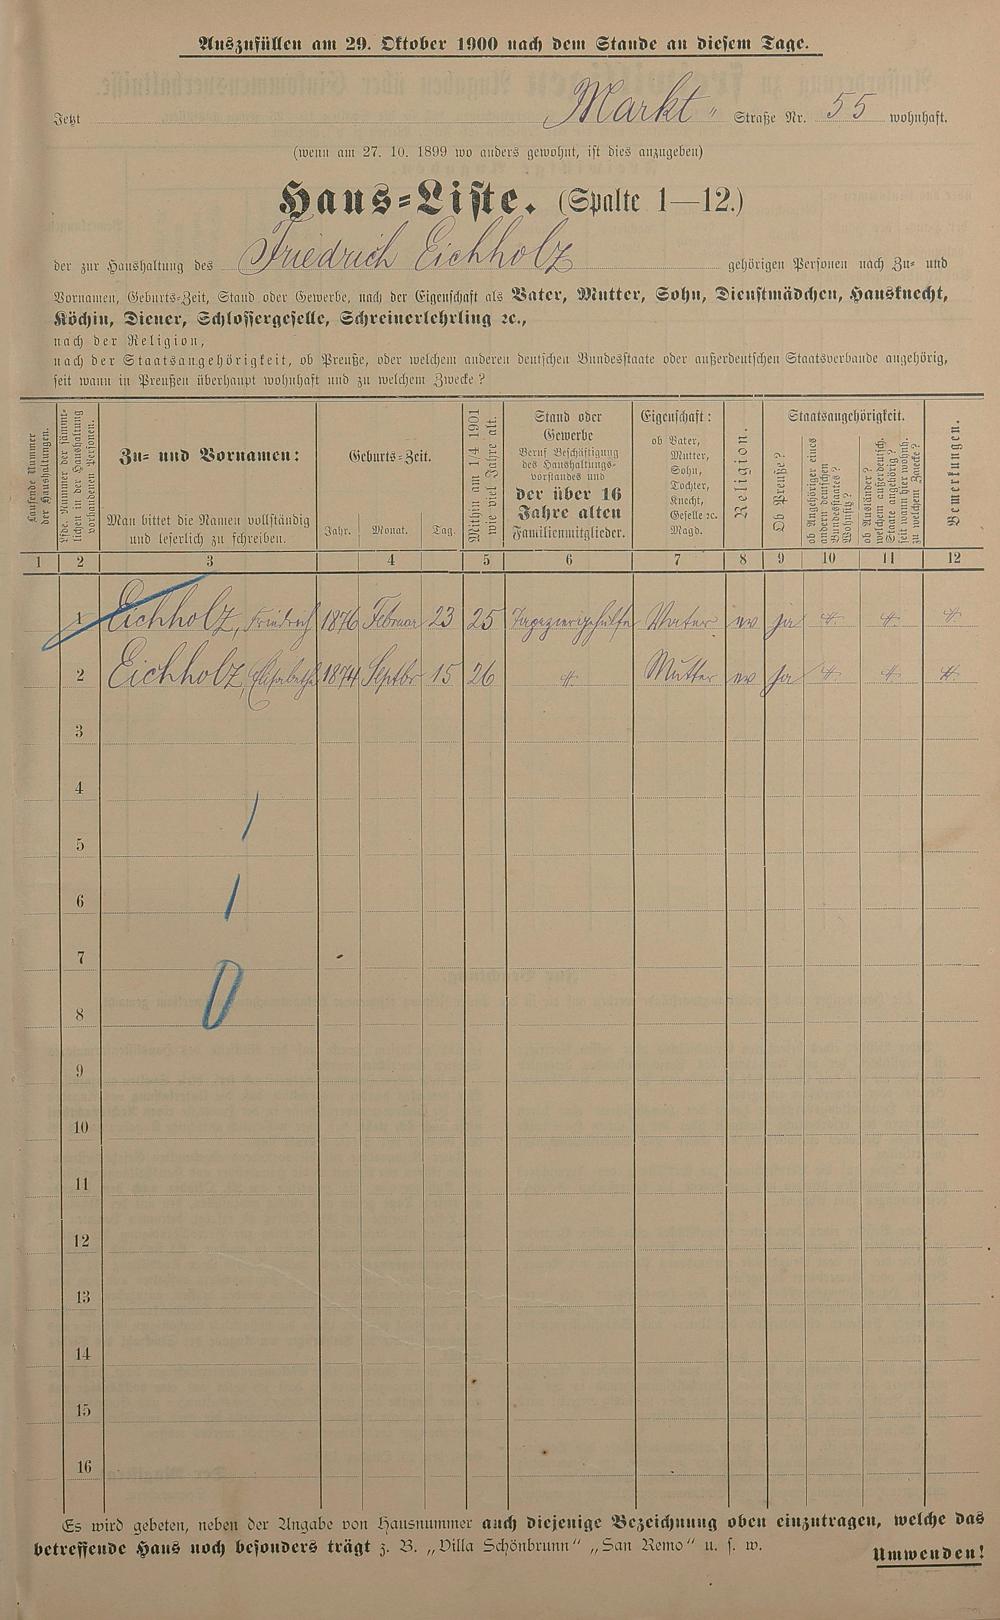 Auszufüllen am 29. Oktober 1900 nach dem Stande an diesem Tage.
Jetzt Markt " Straße Nr. 55 wohnhaft.
(wenn am 27. 10. 1899 wo anders gewohnt, ist dies anzugeben)
Haus-Liste. (Spalte 1—12.)
der zur Haushaltung des Friedrich Eichholz gehörigen Personen nach Zu- und
Vornamen, Geburts-Zeit, Stand oder Gewerbe, nach der Eigenschaft als Vater, Mutter, Sohn, Dienstmädchen, Hausknecht,
Köchin, Diener, Schlossergeselle, Schreinerlehrling ꝛc.,
nach der Religion,
nach der Staatsangehörigkeit, ob Preuße, oder welchem anderen deutschen Bundesstaate oder außerdeutschen Staatsverbande angehörig,
seit wann in Preußen überhaupt wohnhaft und zu welchem Zwecke?
Laufende Nummer
der Haushaltungen.
Lfde. Nummer der sämmt-
lichen in der Haushaltung
vorhandenen Personen.
Zu- und Vornamen:
Man bittet die Namen vollständig
und leserlich zu schreiben.
Geburts-Zeit.
Jahr. Monat. Tag.
Mithin am 1/4 1901
wie viel Jahre alt.
Stand oder
Gewerbe
Beruf Beschäftigung
des Haushaltungs-
vorstandes und
der über 16
Jahre alten
Familienmitglieder.
Eigenschaft:
ob Vater,
Mutter,
Sohn,
Tochter,
Knecht,
Geselle ꝛc.
Magd.
Religion.
Staatsangehörigkeit.
Ob Preuße?
ob Angehöriger eines
andern deutschen
Bundesstaates?
Wohnsitz?
ob Ausländer?
welchem außerdeutsch.
Staate angehörig?
seit wann hier wohnh.
zu welchem Zwecke?
Bemerkungen.
1 2 3 4 5 6 7 8 9 10 11 12
1 Eichholz, Friedrich 1876 Februar 23 25 Tapeziergehülfe Vater ev ja
2 Eichholz, Elisabetha 1874 Septbr 15 26 Mutter ev ja
3
4
5
6
7
8
9
10
11
12
13
14
15
16
Es wird gebeten, neben der Angabe von Hausnummer auch diejenige Bezeichnung oben einzutragen, welche das
betreffende Haus noch besonders trägt z. B. „Villa Schönbrunn" „San Remo" u. s. w.
Umwenden!